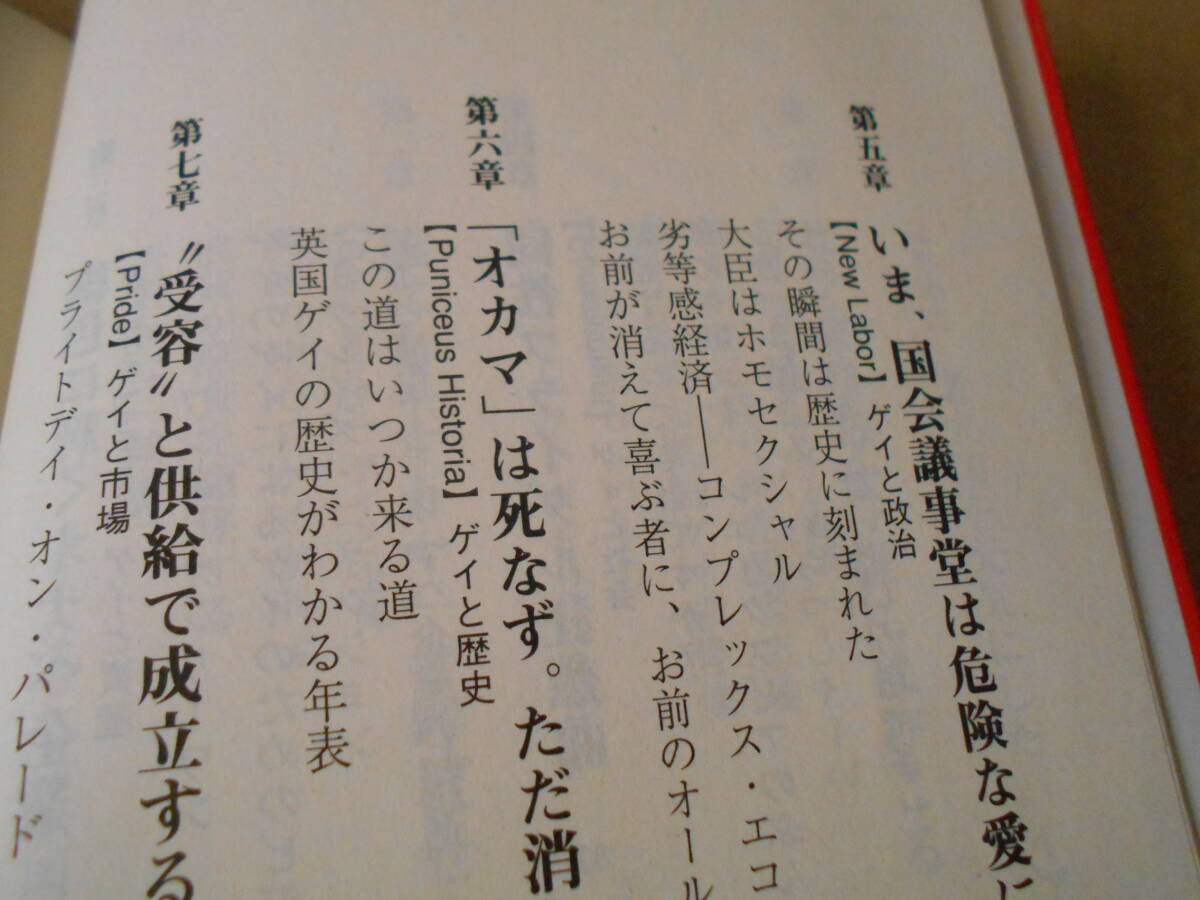 第五章 いま、国会議事堂は危険な愛に
【New Labor】ゲイと政治
その瞬間は歴史に刻まれた
大臣はホモセクシャル
劣等感経済――コンプレックス・エコ
お前が消えて喜ぶ者に、お前のオール
第六章 「オカマ」は死なず。ただ消
【Puniceus Historia】ゲイと歴史
この道はいつか来る道
英国ゲイの歴史がわかる年表
第七章 〝受容〟と供給で成立する
【Pride】ゲイと市場
プライトデイ・オン・パレード